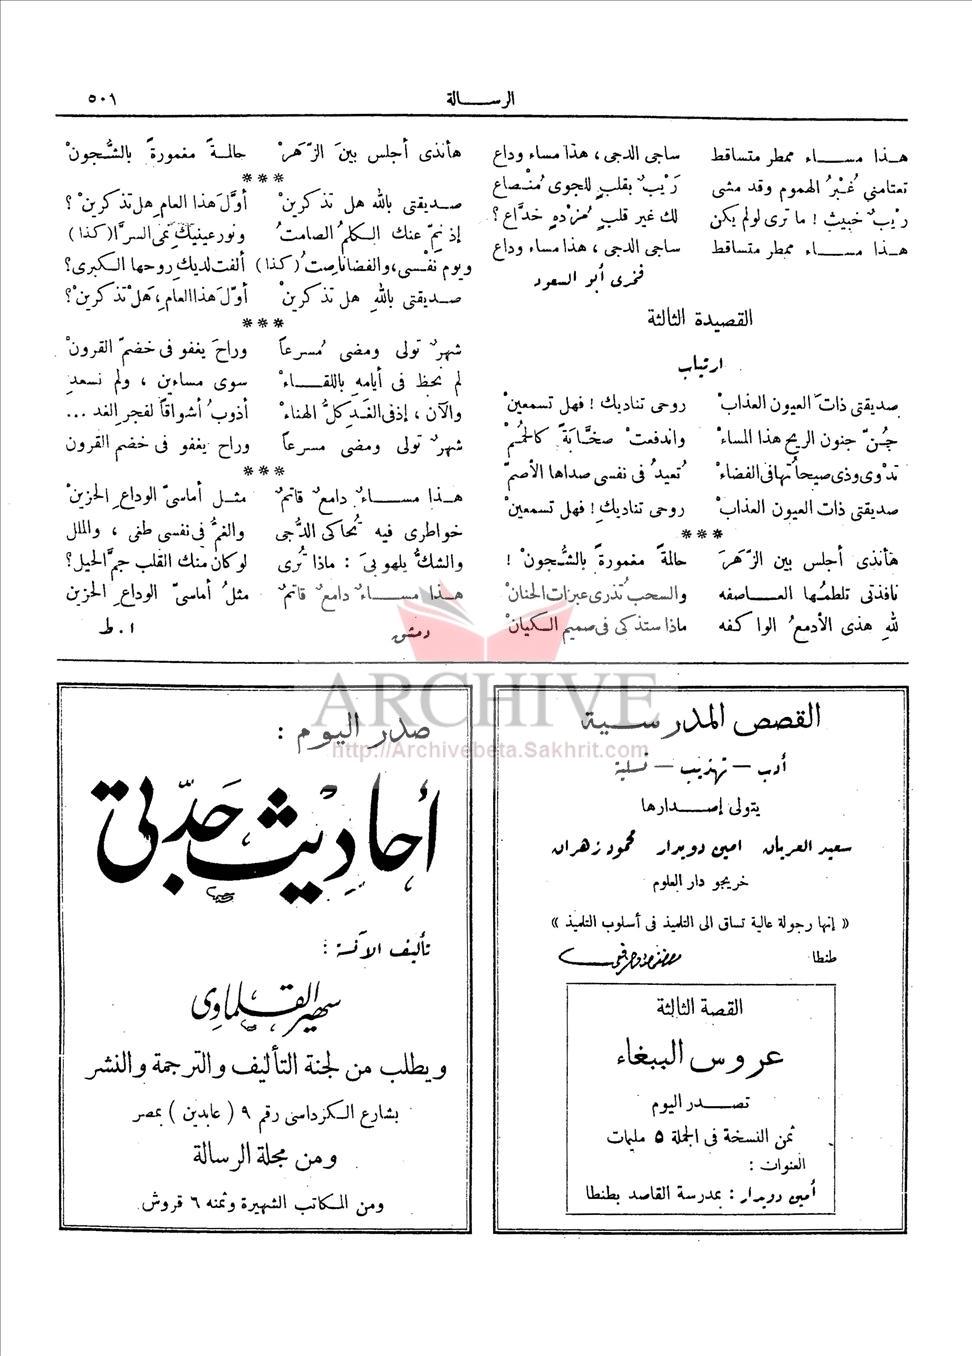 الرسالة
٥٠١
هذا مساء ممطر متساقط ساجى الدجى ، هذا مساء وداع
تعتامني غُبْرُ الهموم وقد مشى رَيْبٌ بقلبٍ للجوى مُنْصاع
ريْبٌ خبيث ! ما ترى لو لم يكن لك غير قلبٍ مُزْدهٍ خدَّاع ؟
هذا مساء ممطر متساقط ساجى الدجى ، هذا مساء وداع
فخرى أبو السعود
القصيدة الثالثة
ارتياب
صديقتى ذاتَ العيون العذابْ روحى تناديك ! فهل تسمعينْ
جُنّ جنون الريح هذا المساءْ واندفعتْ صخَّابةً كالحُمْ
تدْوى وذى صيحاتها فى الفضاءْ تُعيدُ فى نفسى صداها الأصمّ
صديقتى ذات العيون العذابْ روحى تناديكِ ! فهل تسمعينْ
***
هأنذى أجلس بين الزّهَرْ حالمةً مغمورةً بالشُّجونْ !
نافذتى تلطمُها العاصفه والسحب تُذرى عبرات الحنانْ
للهِ هذى الأدمعُ الواكفه ماذا ستذكى فى صميم الكيانْ
هأنذى أجلس بينَ الزّهَرْ حالمةً مغمورةً بالشُّجونْ
***
صديقتى بالله هل تذكرينْ أوَّلَ هذا العام هل تذكرينْ ؟
إذ نمّ عنك الكلمُ الصامتُ ونور عينيكِ نمى السرَّا (كذا)
ويوم نفْسى، والفضا نارصتُ (كذا) ألفت لديكِ روحها الكبرى؟
صديقتى باللهِ هل تذكرينْ أوّلَ هذا العامِ، هلْ تذكرينْ ؟
***
شهرٌ تولى ومضى مُسرعاً وراحَ يغفو فى خضمّ القرونْ
لم يحظ فى أيامهِ باللقاءْ سوى مساءين ، ولم نسعدِ
والآن ، إذ فى الغدِ كلُّ الهناءْ أذوبُ أشواقاً لفجر الغد ...
شهرٌ تولى ومضى مسرعاً وراح يغفو فى خضم القرون
***
هذا مساءٌ دامعٌ قاتمٌ مثل أماسىّ الوداع الحزينْ
خواطرى فيه تُحاكى الدُّجى والغمُّ فى نفسى طغى ، والملل
والشكُّ يلهو بىَ : ماذا تُرى لو كان منك القلب جمَّ الحيل؟
هذا مساءٌ دامعٌ قاتمٌ مثلُ أماسىّ الوداعِ الحزين
دمشق ا . ط
القصص المدرسية
أدب – تهذيب – تسلية
يتولى إصدارها
سعيد العريان امين دويدار محمود زهران
خريجو دار العلوم
« إنها رجولة عالية تساق الى التلميذ فى أسلوب التلميذ »
طنطا
القصة الثالثة
عروس الببغاء
تصدر اليوم
ثمن النسخة فى الجملة ٥ مليمات
العنوان :
أمين دويدار : بمدرسة القاصد بطنطا
صدر اليوم :
أحاديث جدتي
تأليف الآنسة :
سهير القلماوى
ويطلب من لجنة التأليف والترجمة والنشر
بشارع الكرداسى رقم ٩ ( عابدين ) بمصر
ومن مجلة الرسالة
ومن المكاتب الشهيرة وثمنه ٦ قروش
ARCHIVE
http://Archivebeta.Sakhrit.com